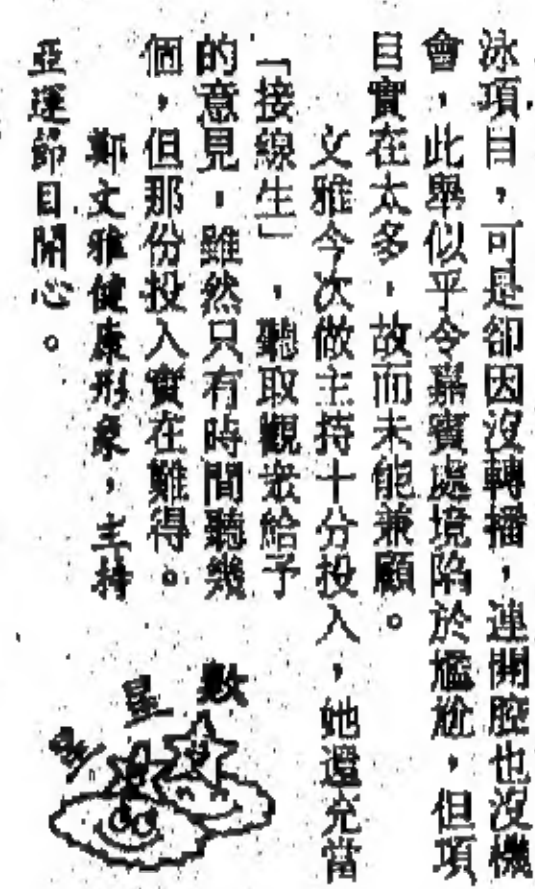 泳項目，可是卻因沒轉播，連開腔也沒機
會，此舉似乎令嘉賓處境陷於尷尬，但項
目實在太多，故而未能兼顧。
文雅今次做主持十分投入，她還充當
「接線生」，聽取觀眾給予
的意見，雖然只有時間聽幾
個，但那份投入實在難得。
鄭文雅健康形象，主持
亞運節目開心。
數星星